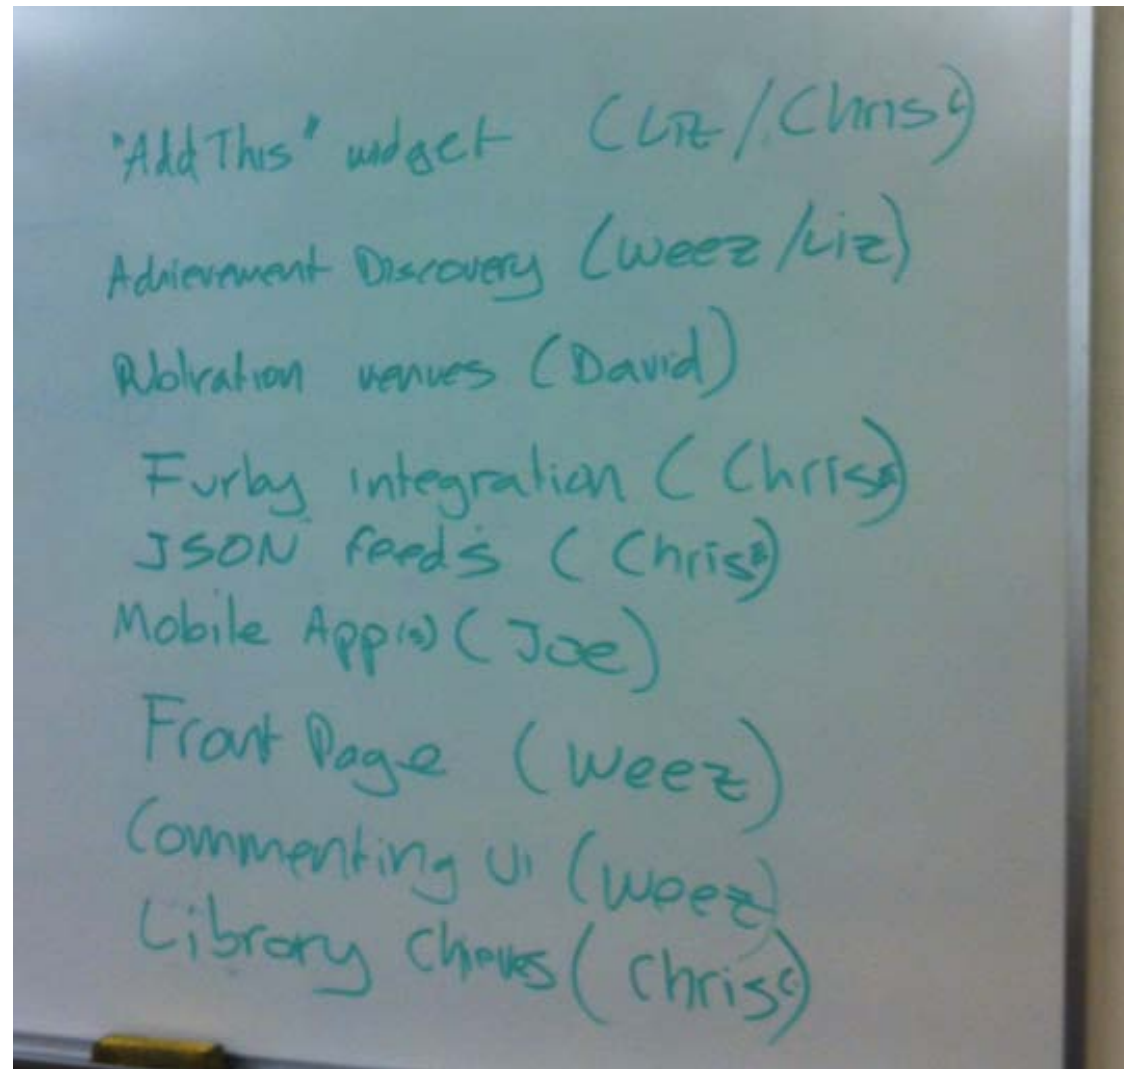 "Add This" widget (Liz / Chris C)
Achievement Discovery (Weez / Liz)
Publication venues (David)
Furby integration (Chris)
JSON feeds (Chris)
Mobile App(s) (Joe)
Front Page (Weez)
Commenting UI (Weez)
Library Chieves (Chris C)